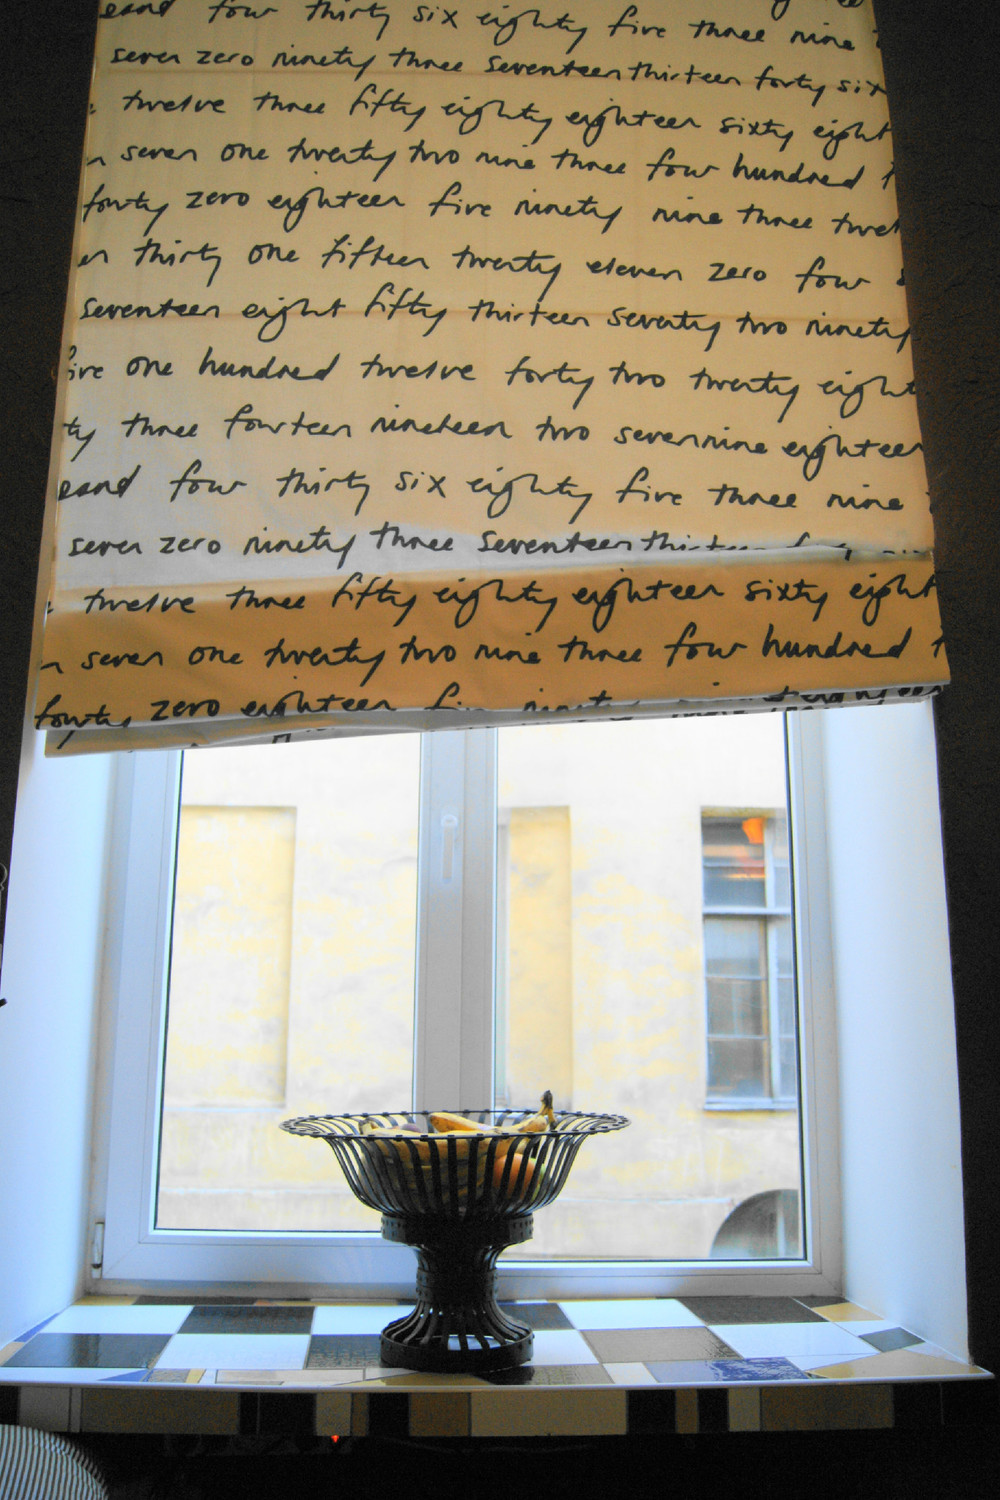 four thirty six eighty five three nine
seven zero ninety three seventeen thirteen forty six
twelve three fifty eighty eighteen sixty eight
seven one twenty two nine three four hundred
forty zero eighteen five ninety nine three
thirty one fifteen twenty eleven zero four
seventeen eight fifty thirteen seventy two ninety
five one hundred twelve forty two twenty eight
ty three fourteen nineteen two seven nine eighteen
sand four thirty six eighty five three nine
seven zero ninety three seventeen thirteen
twelve three fifty eighty eighteen sixty eight
seven one twenty two nine three four hundred
forty zero eighteen